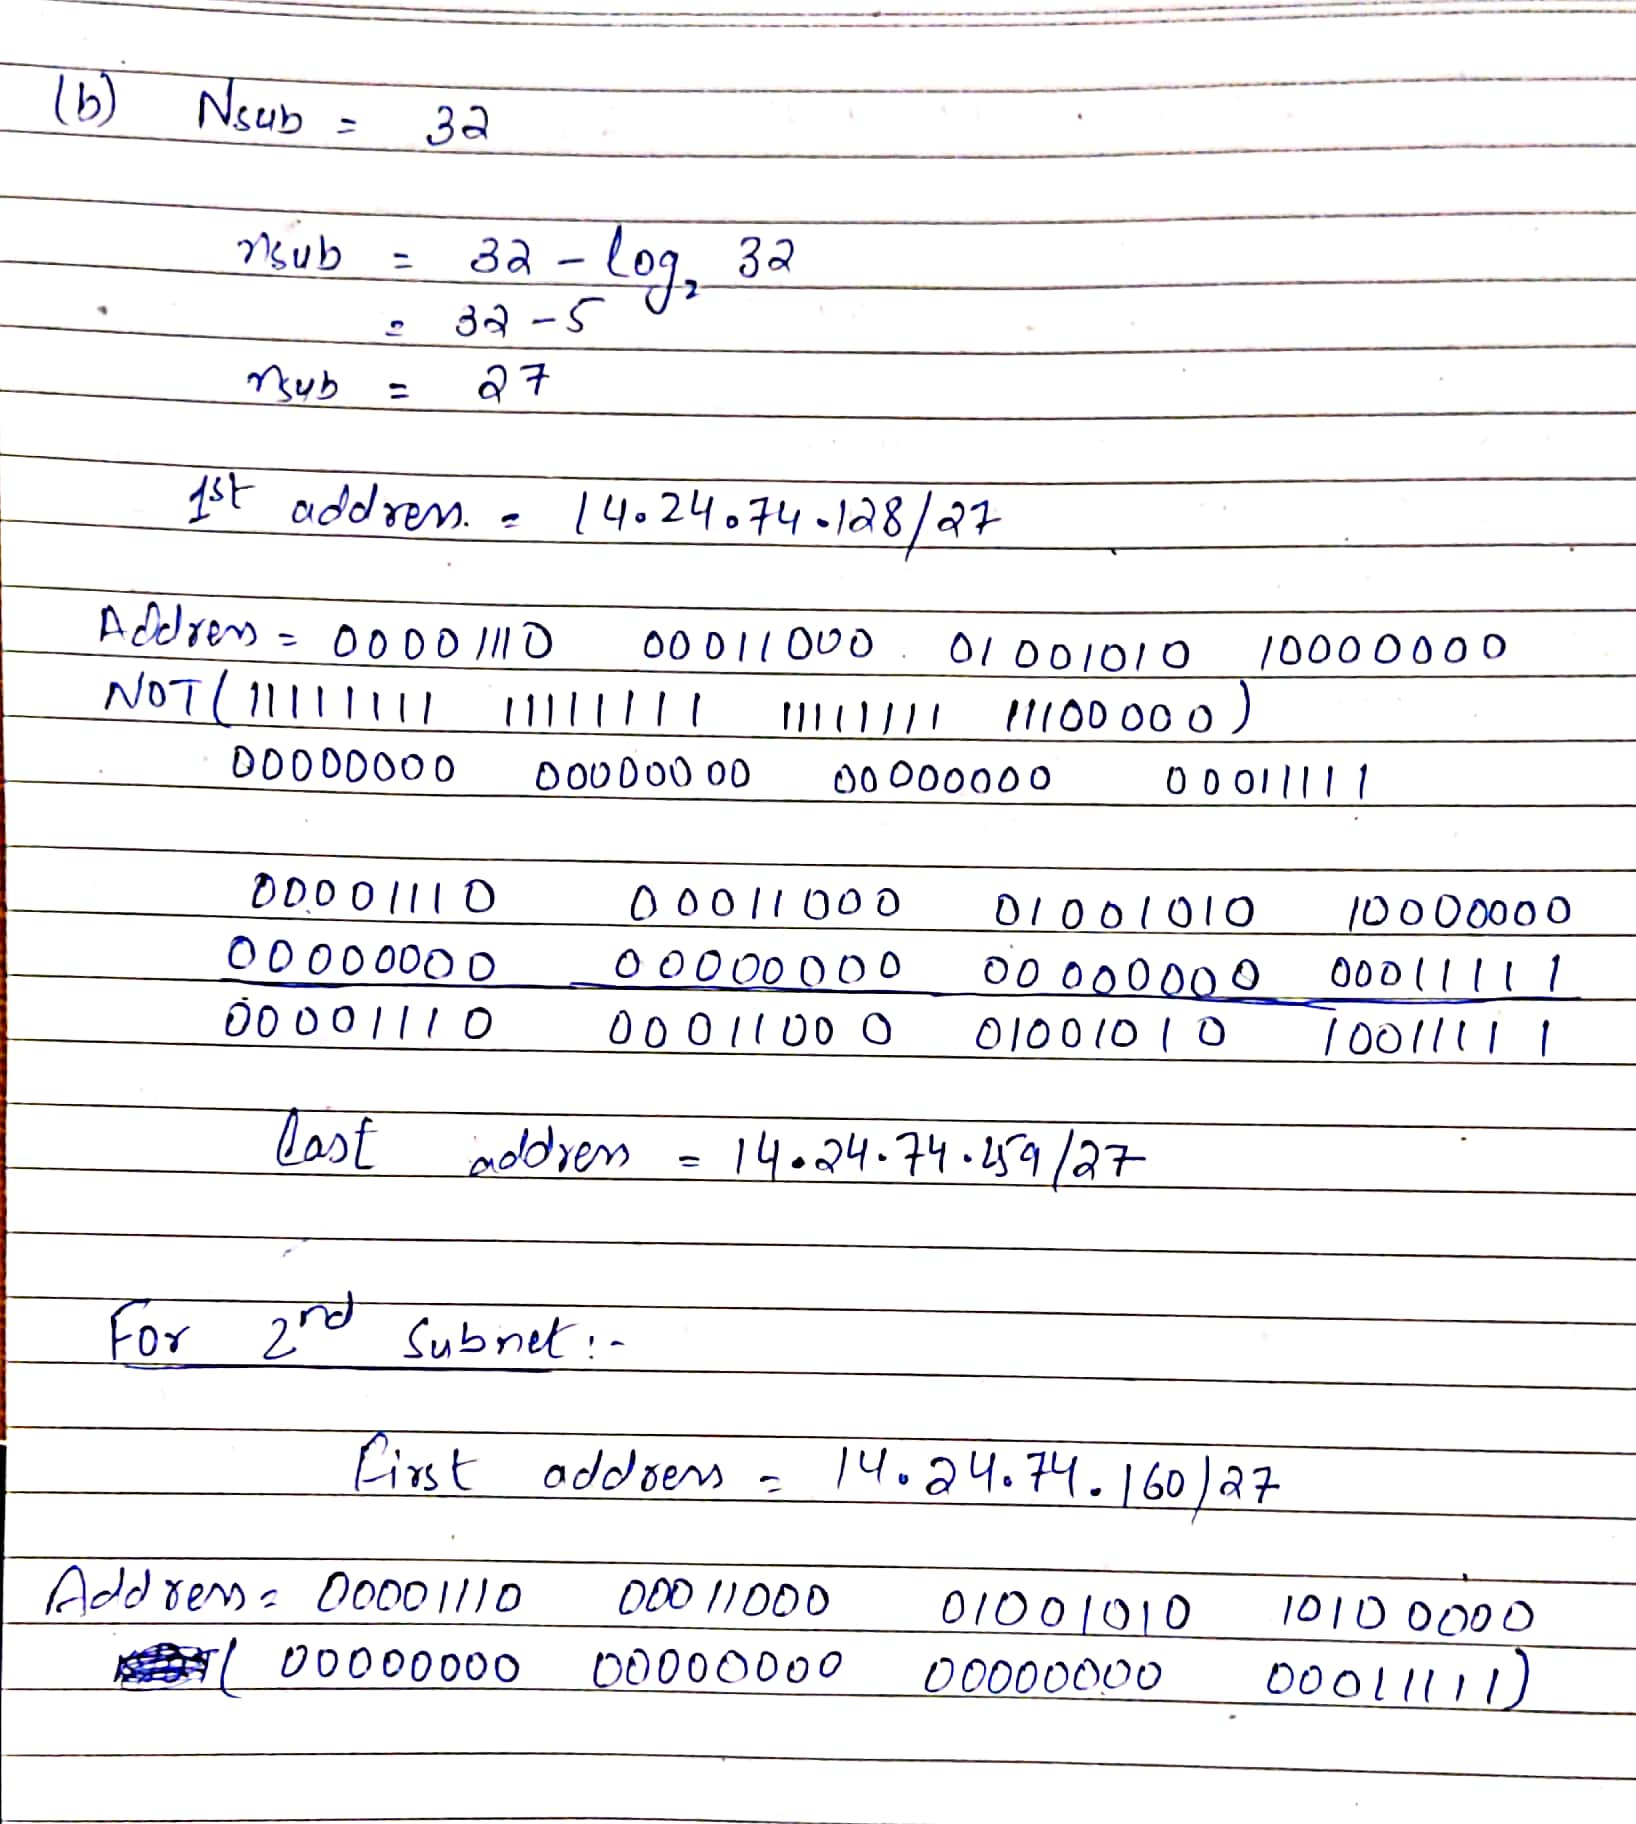 (b) Nsub = 32
nsub = 32 - log₂ 32
= 32 - 5
nsub = 27
1st address. = 14.24.74.128/27
Address = 00001110 00011000 01001010 10000000
NOT(11111111 11111111 11111111 11100000)
00000000 00000000 00000000 00011111
00001110 00011000 01001010 10000000
00000000 00000000 00000000 00011111
00001110 00011000 01001010 10011111
last address = 14.24.74.159/27
For 2nd Subnet:-
First address = 14.24.74.160/27
Address = 00001110 00011000 01001010 10100000
( 00000000 00000000 00000000 00011111)